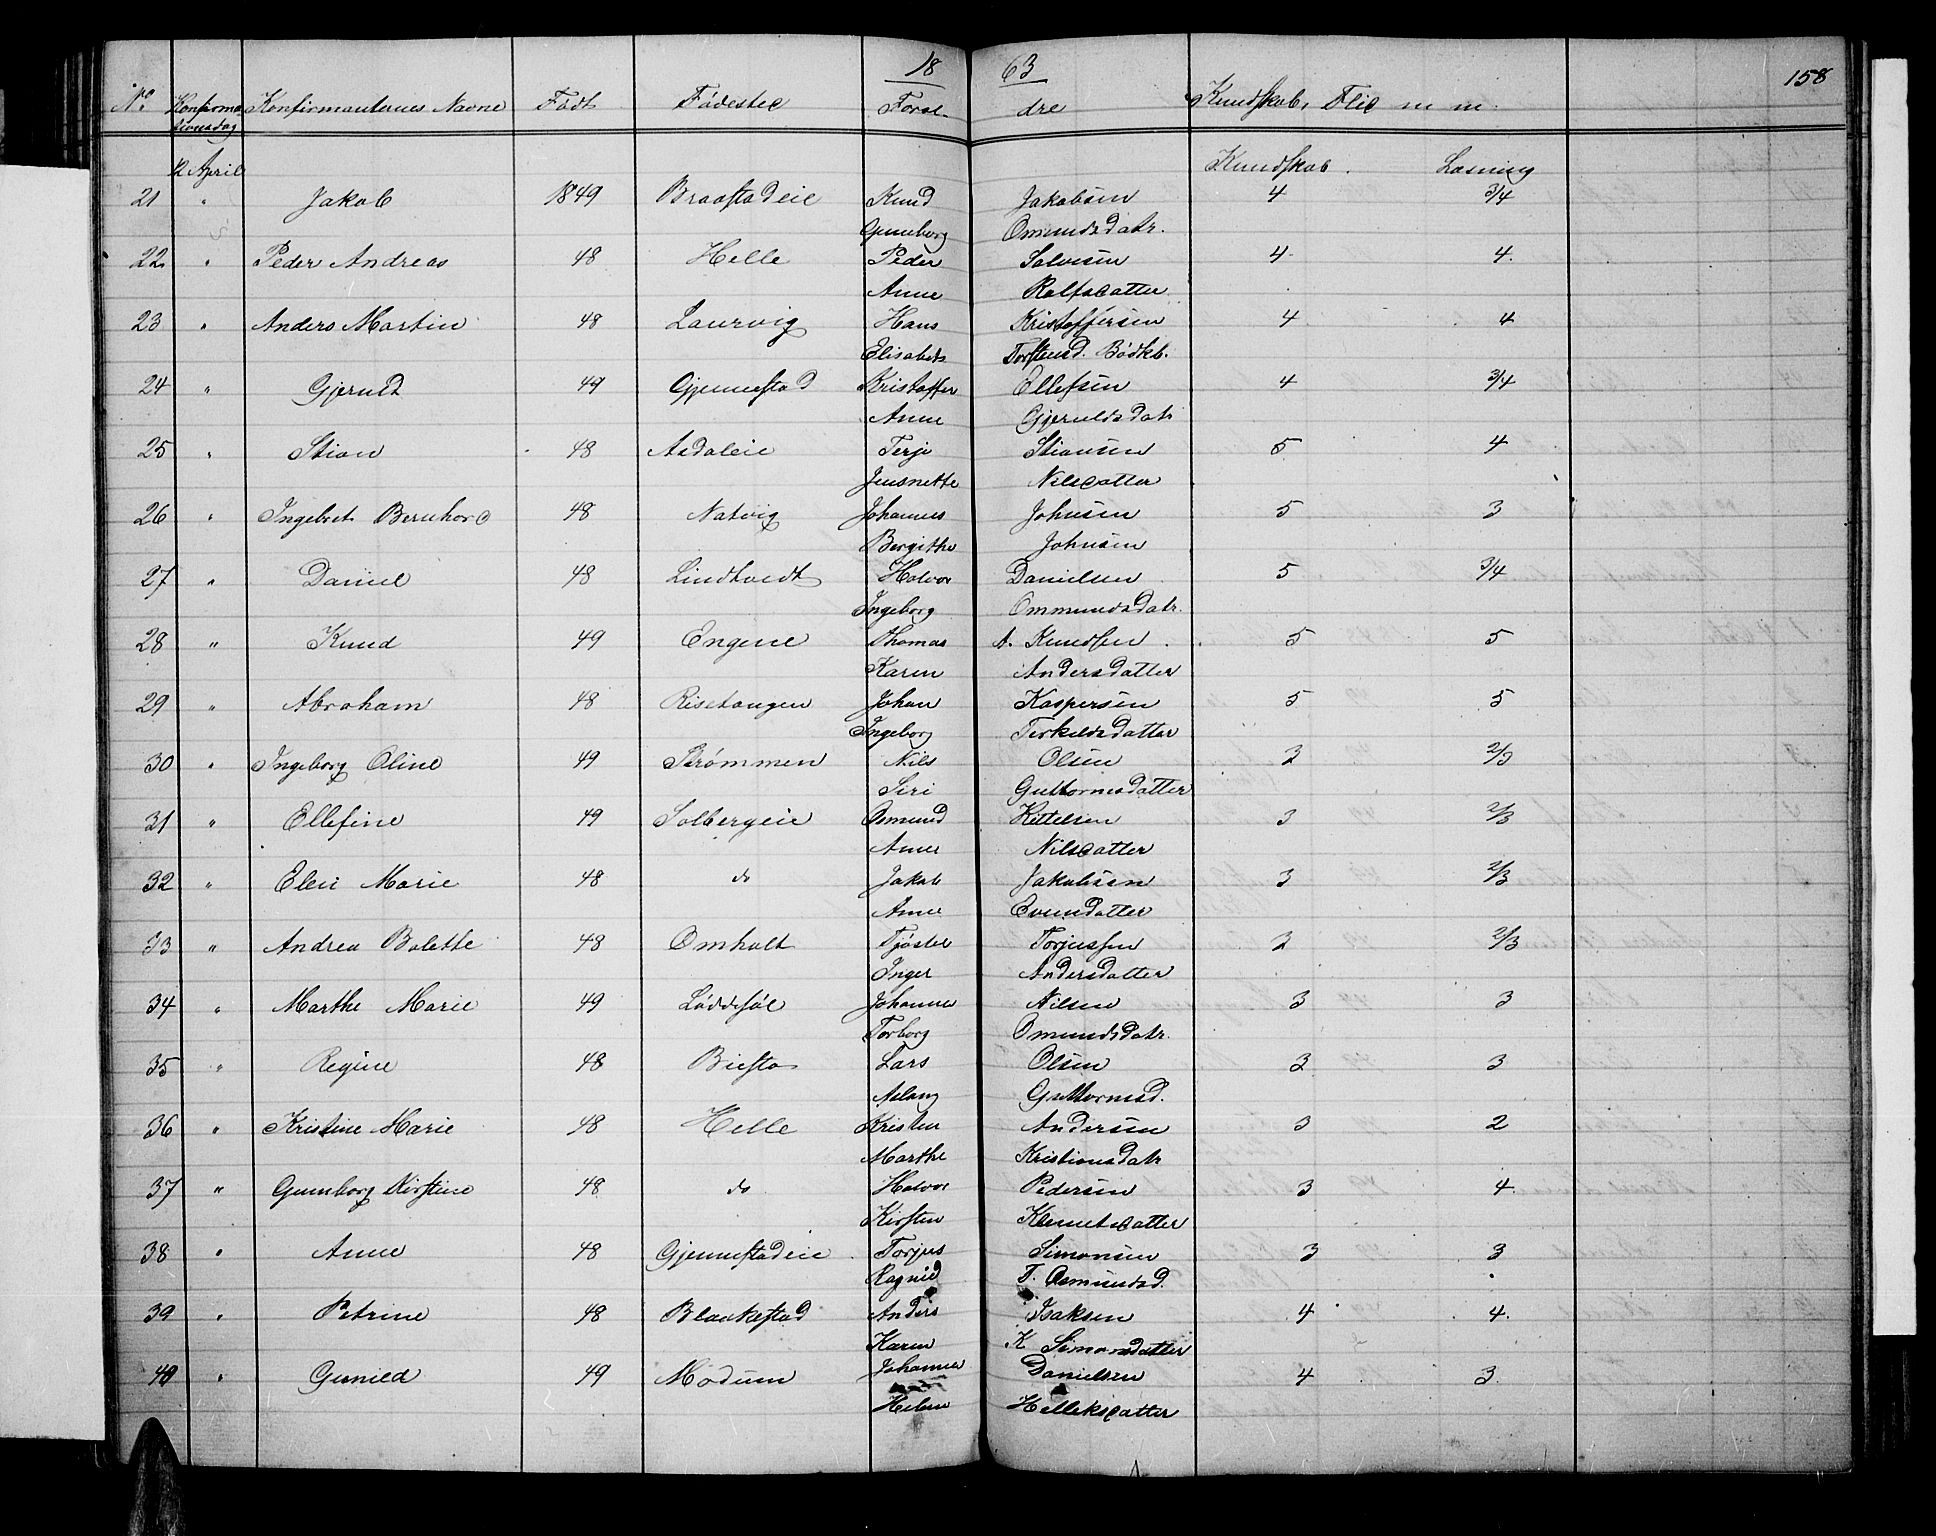 18 63
158
No Konfirma- Konfirmanternes Navne Født Fødested Foræl- dre Kundskab, Flid m m.
tionsdag
12 April Kundskab. Læsning
21 " Jakob 1849 Braastadeie Knud Jakobsen 4 3/4
Guneborg Omundsdatr.
22 " Peder Andreas 48 Helle Peder Salvesen 4 4.
Anne Rolfsdatter
23 " Anders Martin 48 Laurvig Hans Kristoffersen 4 4
Elisabeth Torstensd. Bödkb.
24 " Gjeruld 49 Gjennestad Kristoffer Ellefsen 4 3/4
Anne Gjeruldsdatr
25 " Stian 48 Asdaleie Terje Stiansen 5 4
Jensnette Nilsdatter
26 " Ingebret Bernhard 48 Natvig Johannes Johnsen 5 3
Bergithe Johnsen
27 " Daniel 48 Lindtvedt Halvor Danielsen 5 3/4
Ingeborg Ommundsdatr.
28 " Knud 49 Engene Thomas A. Knudsen 5 5
Karen Andersdatter
29 " Abraham 48 Risetangen Johan Kaspersen 5 5
Ingeborg Terkildsdatter
30 " Ingeborg Oline 49 Strømmen Nils Olsen 3 2/3
Siri Guttormsdatter
31 " Ellefine 49 Solbergeie Osmund Kittelsen 3 2/3
Anne Nilsdatter
32 " Elen Marie 48 do Jakob Jakobsen 3 2/3
Anne Evensdatter
33 " Andrea Bolette 48 Omholt Tjöstel Torjussen 3 2/3
Inger Andersdatter
34 " Marthe Marie 49 Løddesøl Johannes Nilsen 3 3
Torborg Omundsdatr.
35 " Regine 48 Biesta Lars Olsen 3 3
Aslaug Guttormsd.
36 " Kristine Marie 48 Helle Kristen Andersen 3 2
Marthe Kristiansdatr
37 " Gunnborg Kirstine 48 do Halvor Pedersen 3 4.
Kirsten Knutsdatter
38 " Anne 48 Gjennestadeie Torjus Simonsen 3 3
Ragnild T. Osmundsd.
39 " Petrine 48 Blaakestad Anders Isaksen 4 4.
Karen K Simonsdatter
40 " Gunild 49 Modum Johannes Danielsen 4 3.
Helene Helleksdatter